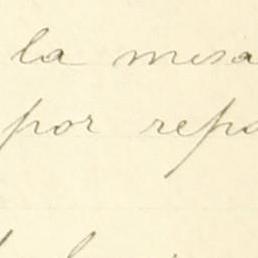 la mesa
por repa